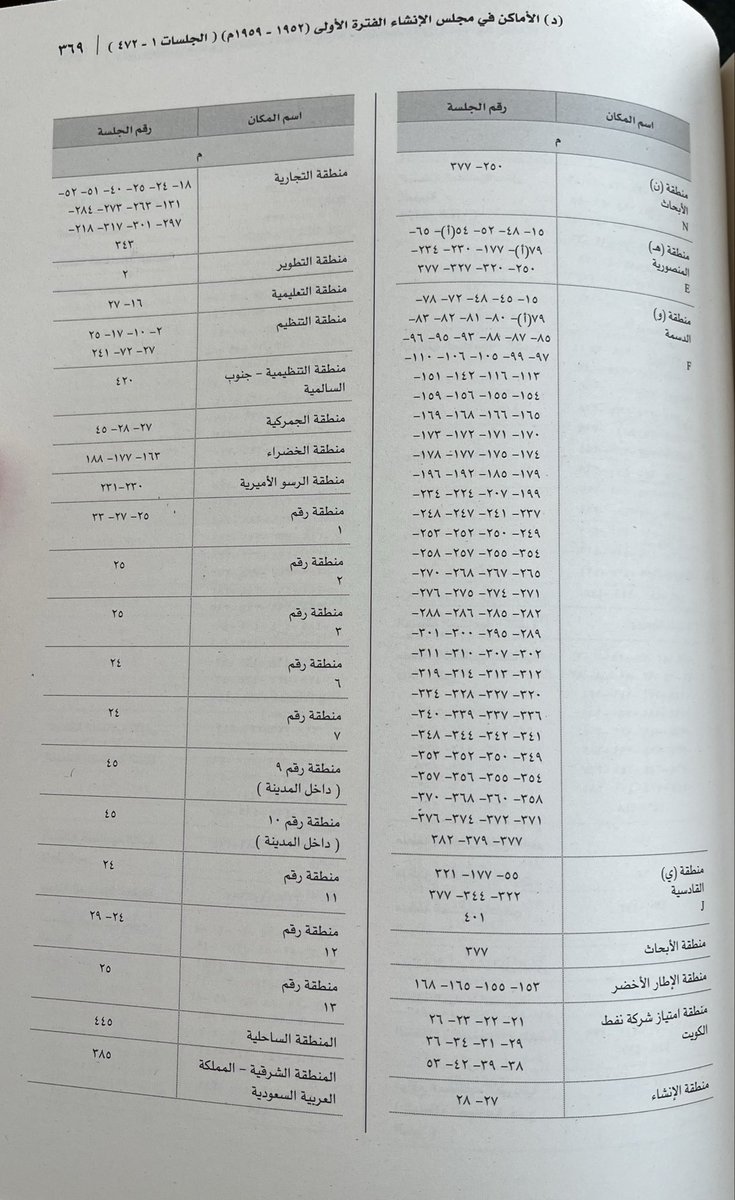 (د) الأماكن في مجلس الإنشاء الفترة الأولى (١٩٥٢ - ١٩٥٩م) ( الجلسات ١ - ٤٧٢ ) / ٣٦٩
اسم المكان رقم الجلسة
م
منطقة (ن) ٢٥٠- ٣٧٧
الأبحاث
N
منطقة (هـ) ١٥- ٤٨- ٥٢- ٥٤(أ)- ٦٥-
المنصورية ٧٩(أ)- ١٧٧- ٢٣٠- ٢٣٤-
E ٢٥٠- ٣٢٠- ٣٢٧- ٣٧٧
منطقة (و) ١٥- ٤٥- ٤٨- ٧٢- ٧٨-
الدسمة ٧٩(أ)- ٨٠- ٨١- ٨٢- ٨٣-
F ٨٥- ٨٧- ٨٨- ٩٣- ٩٥- ٩٦-
٩٧- ٩٩- ١٠٥- ١٠٦- ١١٠-
١١٣- ١١٦- ١٤٢- ١٥١-
١٥٤- ١٥٥- ١٥٦- ١٥٩-
١٦٥- ١٦٦- ١٦٨- ١٦٩-
١٧٠- ١٧١- ١٧٢- ١٧٣-
١٧٤- ١٧٥- ١٧٧- ١٧٨-
١٧٩- ١٨٥- ١٩٢- ١�٦-
١٩٩- ٢٠٧- ٢٢٤- ٢٣٤-
٢٣٧- ٢٤١- ٢٤٧- ٢٤٨-
٢٤٩- ٢٥٠- ٢٥٢- ٢٥٣-
٣٥٤- ٢٥٥- ٢٥٧- ٢٥٨-
٢٦٥- ٢٦٧- ٢٦٨- ٢٧٠-
٢٧١- ٢٧٤- ٢٧٥- ٢٧٦-
٢٨٢- ٢٨٥- ٢٨٦- ٢٨٨-
٢٨٩- ٢٩٥- ٣٠٠- ٣٠١-
٣٠٢- ٣٠٧- ٣١٠- ٣١١-
٣١٢- ٣١٣- ٣١٤- ٣١٩-
٣٢٠- ٣٢٧- ٣٢٨- ٣٣٤-
٣٣٦- ٣٣٧- ٣٣٩- ٣٤٠-
٣٤١- ٣٤٢- ٣٤٤- ٣٤٨-
٣٤٩- ٣٥٠- ٣٥٢- ٣٥٣-
٣٥٤- ٣٥٥- ٣٥٦- ٣٥٧-
٣٥٨- ٣٦٠- ٣٦٨- ٣٧٠-
٣٧١- ٣٧٢- ٣٧٤- ٣٧٦-
٣٧٧- ٣٧٩- ٣٨٢
منطقة (ي) ٥٥- ١٧٧- ٣٢١
القادسية ٣٢٢- ٣٤٤- ٣٧٧
J ٤٠١
منطقة الأبحاث ٣٧٧
منطقة الإطار الأخضر ١٥٣- ١٥٥- ١٦٥- ١٦٨
منطقة امتياز شركة نفط ٢١- ٢٢- ٢٣- ٢٦
الكويت ٢٩- ٣١- ٣٤- ٣٦
٣٨- ٣٩- ٤٢- ٥٣
منطقة الإنشاء ٢٧- ٢٨
اسم المكان رقم الجلسة
م
منطقة التجارية ١٨- ٢٤- ٢٥- ٤٠- ٥١- ٥٢-
١٣١- ٢٦٣- ٢٧٣- ٢٨٤-
٢٩٧- ٣٠١- ٣١٧- ٢١٨-
٣٤٣
منطقة التطوير ٢
منطقة التعليمية ١٦- ٢٧
منطقة التنظيم ٢- ١٠- ١٧- ٢٥
٢٧- ٧٢- ٢٤١
منطقة التنظيمية - جنوب ٤٢٠
السالمية
منطقة الجمركية ٢٧- ٢٨- ٤٥
منطقة الخضراء ١٦٣- ١٧٧- ١٨٨
منطقة الرسو الأميرية ٢٣٠-٢٣١
منطقة رقم ٢٥- ٢٧- ٣٣
١
منطقة رقم ٢٥
٢
منطقة رقم ٢٥
٣
منطقة رقم ٢٤
٦
منطقة رقم ٢٤
٧
منطقة رقم ٩ ٤٥
( داخل المدينة )
منطقة رقم ١٠ ٤٥
( داخل المدينة )
منطقة رقم ٢٤
١١
منطقة رقم ٢٤- ٢٩
١٢
منطقة رقم ٢٥
١٣
المنطقة الساحلية ٤٤٥
المنطقة الشرقية - المملكة ٣٨٥
العربية السعودية